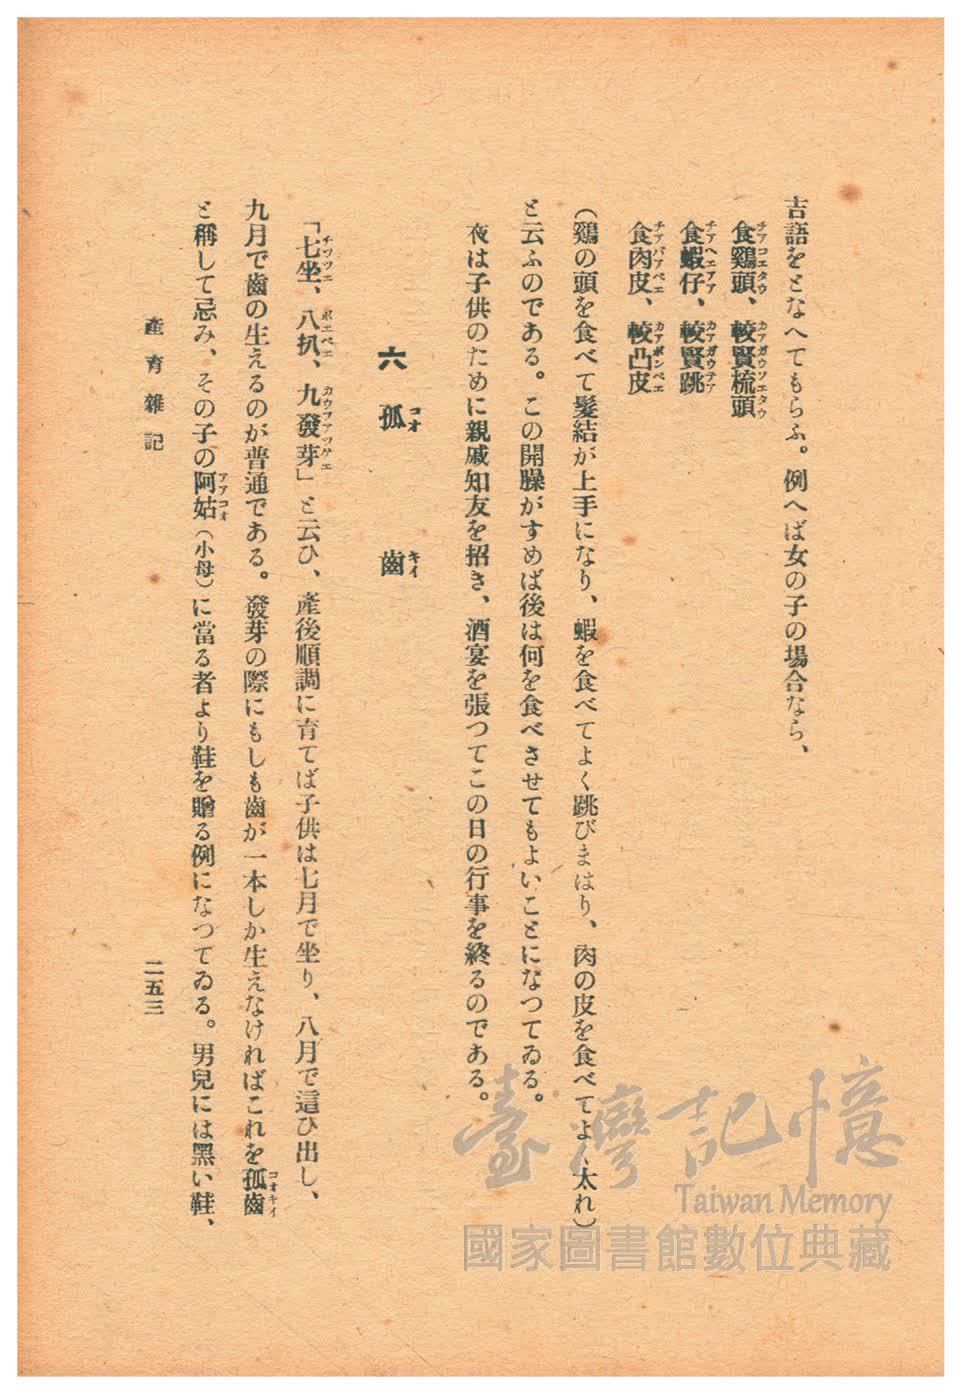 吉語をとなへてもらふ。例へば女の子の場合なら、
食鷄頭、較賢梳頭
食蝦仔、較賢跳
食肉皮、較凸皮
（鷄の頭を食べて髮結が上手になり、蝦を食べてよく跳びまはり、肉の皮を食べてよく太れ）
と云ふのである。この開臊がすめば後は何を食べさせてもよいことになつてゐる。
夜は子供のために親戚知友を招き、酒宴を張つてこの日の行事を終るのである。
六 孤齒
コオ キイ
「七坐、八扒、九發芽」と云ひ、產後順調に育てば子供は七月で坐り、八月で這ひ出し、
九月で齒の生えるのが普通である。發芽の際にもしも齒が一本しか生えなければこれを孤齒
コオキイ
と稱して忌み、その子の阿姑（小母）に當る者より鞋を贈る例になつてゐる。男兒には黑い鞋、
アアコオ
產育雜記
二五三
臺灣記憶
Taiwan Memory
國家圖書館數位典藏